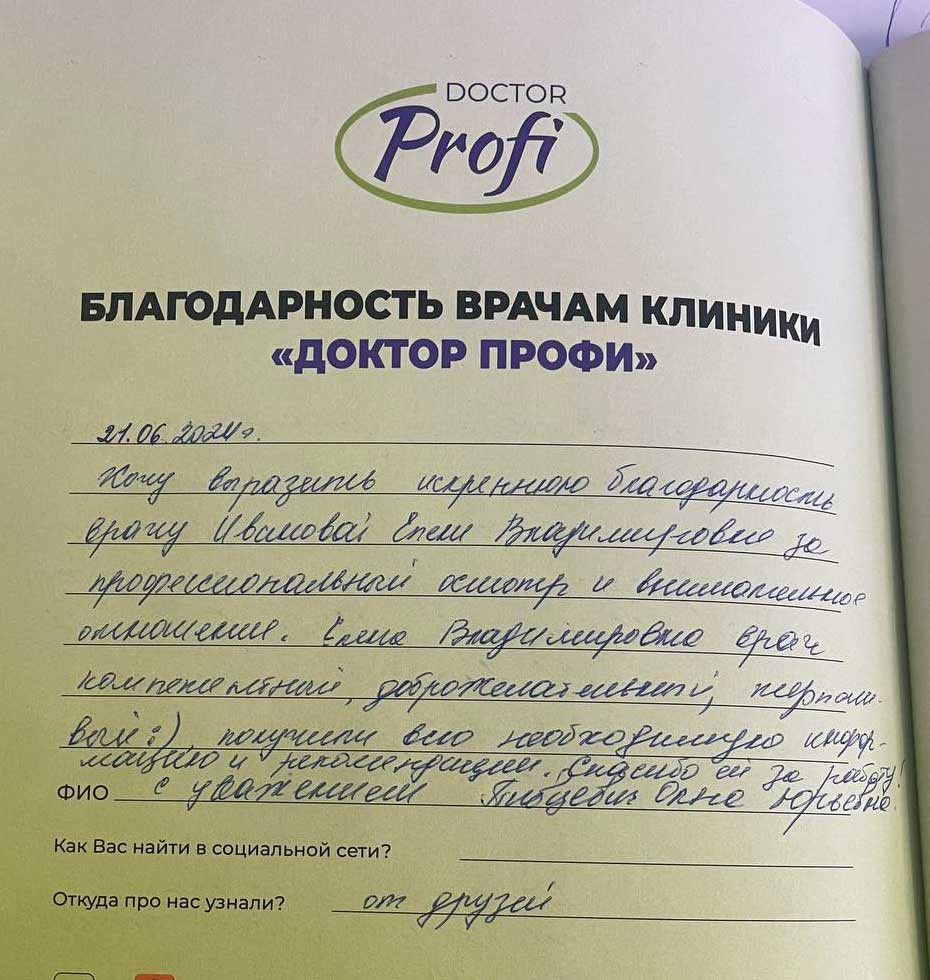 DOCTOR
Profi
БЛАГОДАРНОСТЬ ВРАЧАМ КЛИНИКИ
«ДОКТОР ПРОФИ»
21.06.2024г.
Хочу выразить искреннюю благодарность
врачу Ивановой Елене Владимировне за
профессиональный осмотр и внимательное
отношение. Елена Владимировна врач
компетентный, доброжелательный, терпели-
вый :), получили всю необходимую инфор-
мацию и рекомендации. Спасибо ей за работу!
ФИО с уважением Юрьевна.
Как Вас найти в социальной сети?
Откуда про нас узнали? от друзей